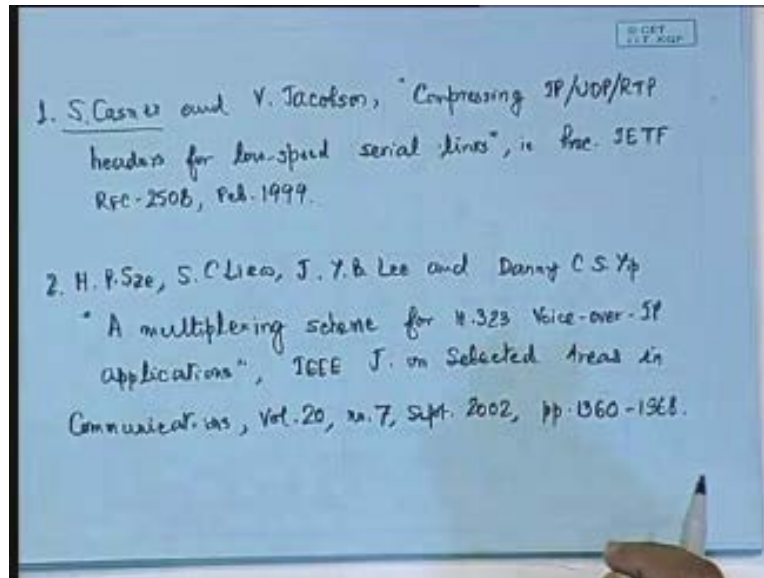 © CET
I.I.T. KGP
1. S. Casner and V. Jacobson, "Compressing IP/UDP/RTP
headers for low-speed serial lines", in Proc. IETF
RFC-2508, Feb. 1999.
2. H. P. Sze, S. C Liew, J. Y. B Lee and Danny C S. Yip
" A multiplexing scheme for H.323 Voice-over-IP
applications", IEEE J. on Selected Areas in
Communications, Vol. 20, no. 7, Sept. 2002, pp. 1360-1368.